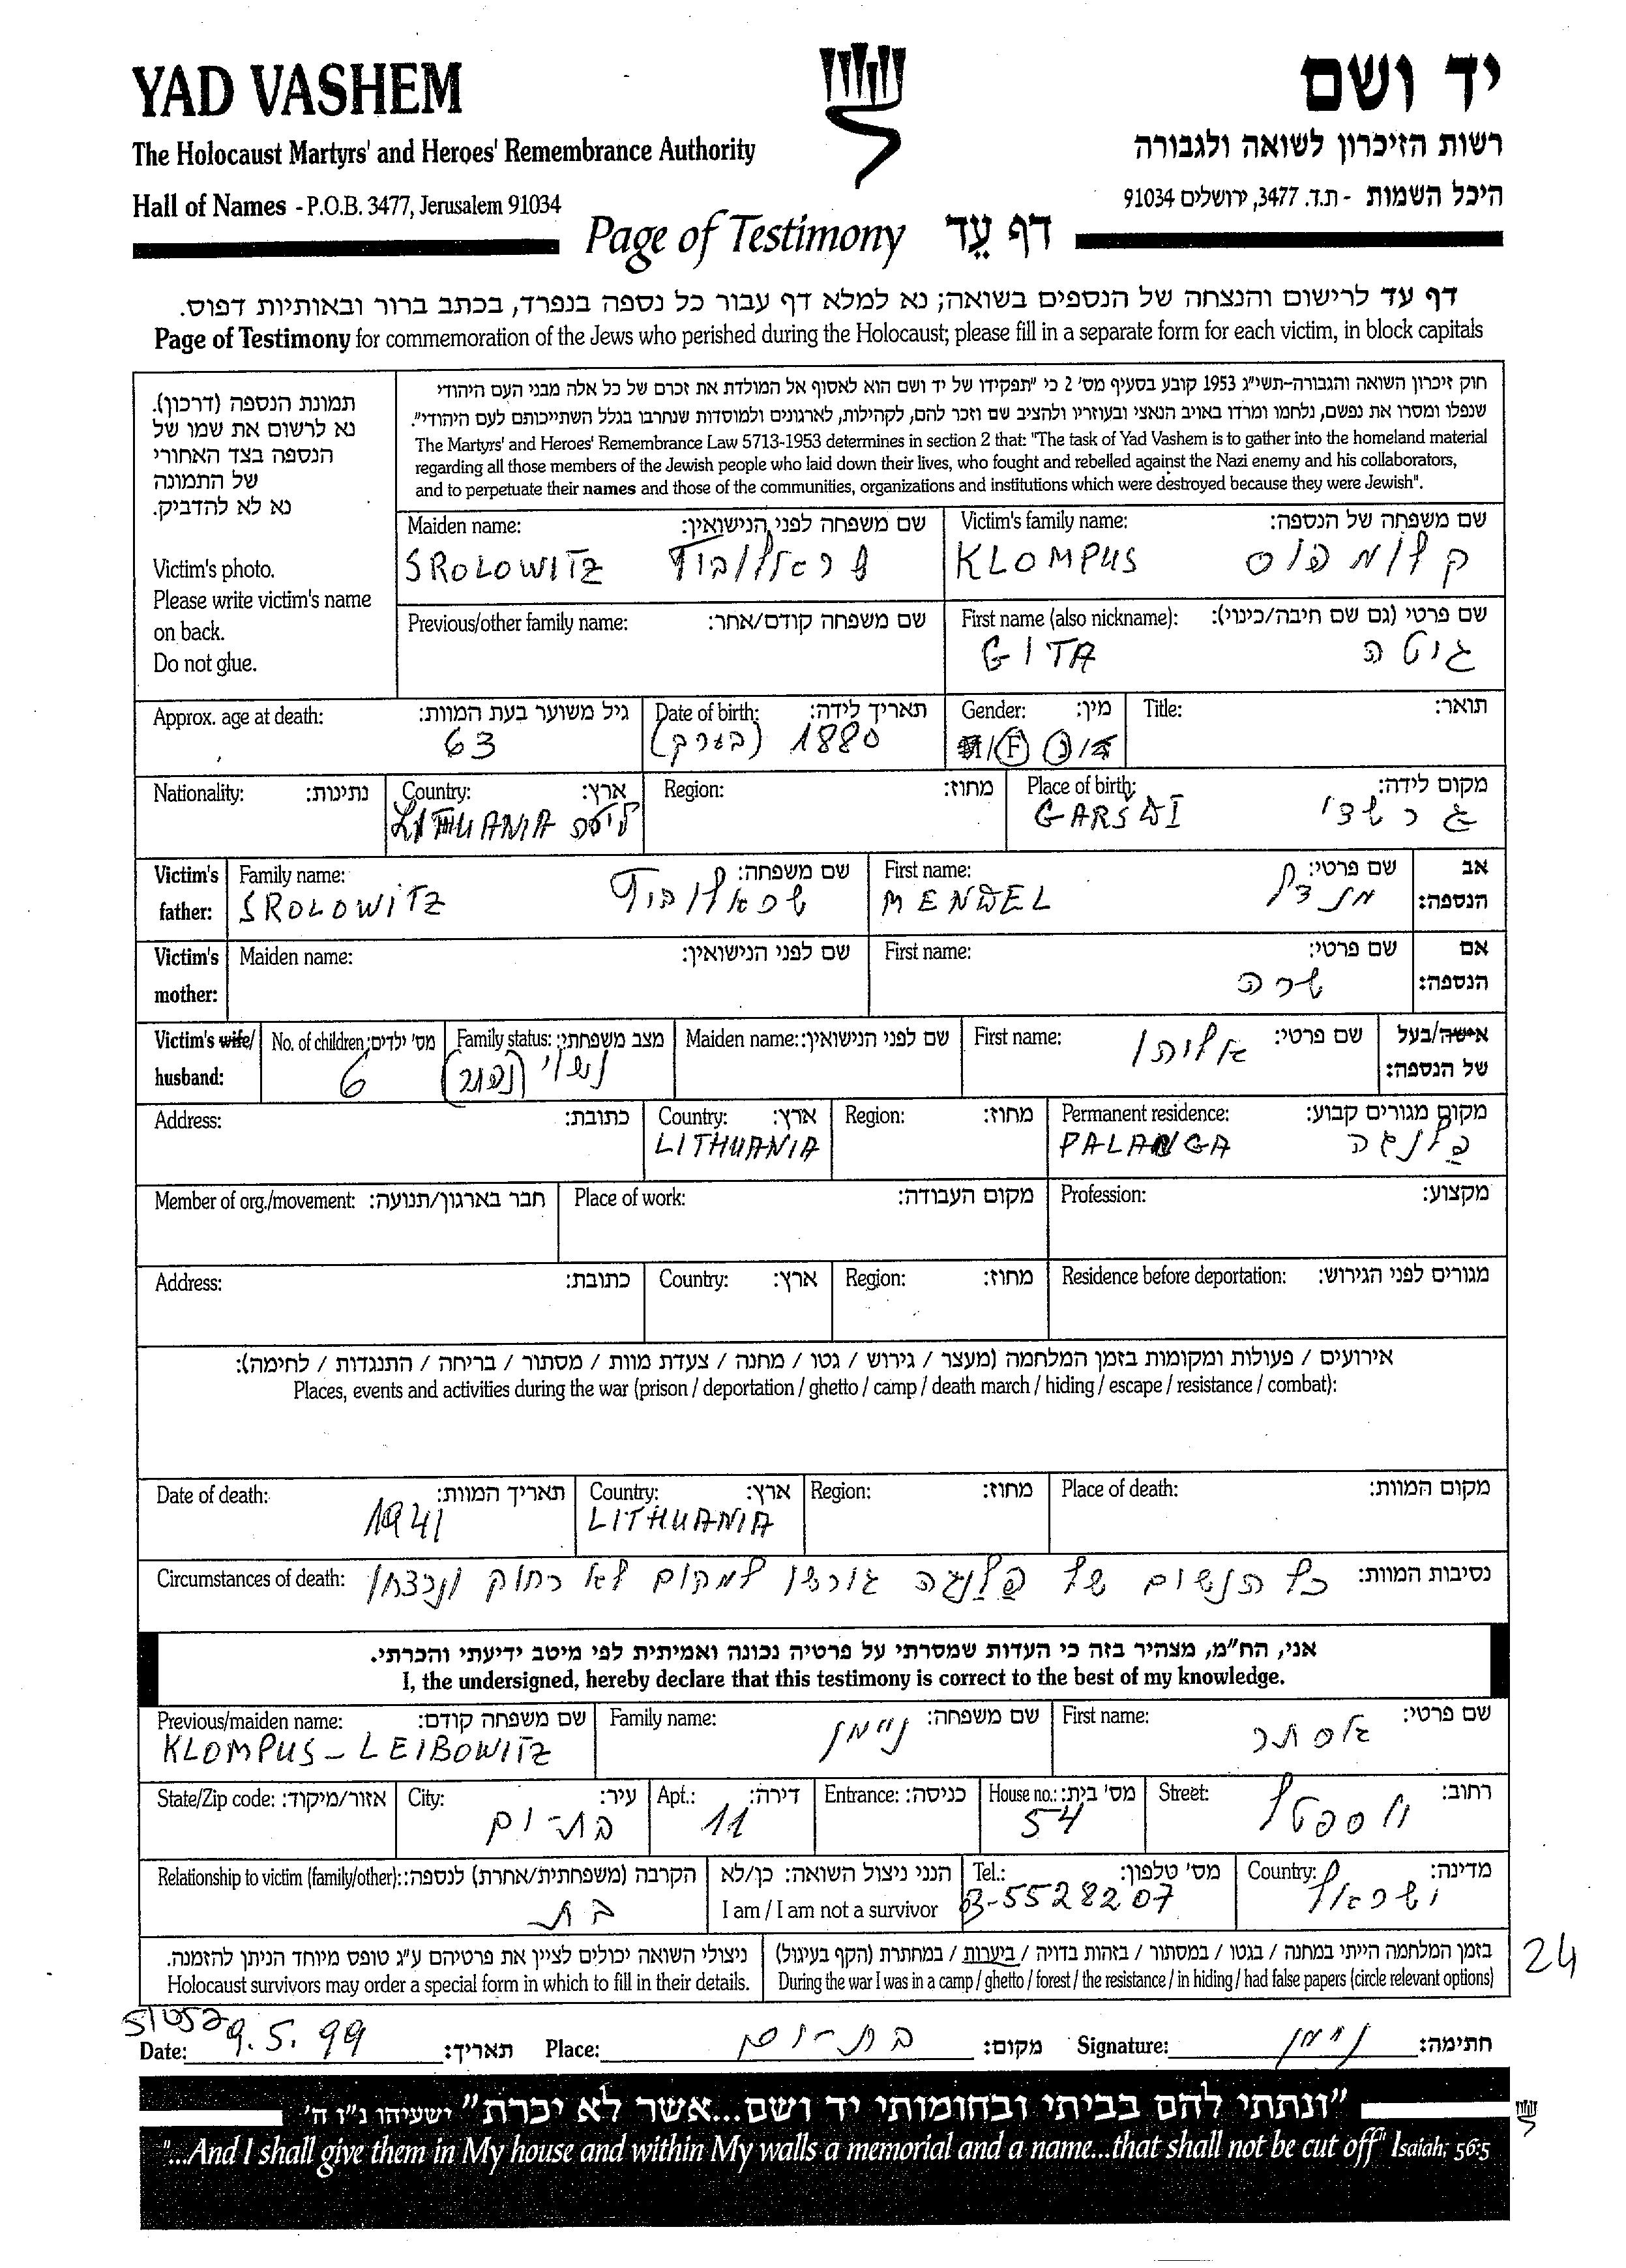 YAD VASHEM
יד ושם
The Holocaust Martyrs' and Heroes' Remembrance Authority
רשות הזיכרון לשואה ולגבורה
Hall of Names - P.O.B. 3477, Jerusalem 91034
היכל השמות - ת.ד. 3477, ירושלים 91034
Page of Testimony דף עֵד
דף עד לרישום והנצחה של הנספים בשואה; נא למלא דף עבור כל נספה בנפרד, בכתב ברור ובאותיות דפוס.
Page of Testimony for commemoration of the Jews who perished during the Holocaust; please fill in a separate form for each victim, in block capitals
תמונת הנספה (דרכון).
נא לרשום את שמו של
הנספה בצד האחורי
של התמונה
נא לא להדביק.
Victim's photo.
Please write victim's name
on back.
Do not glue.
חוק זיכרון השואה והגבורה-תשי"ג 1953 קובע בסעיף מס' 2 כי "תפקידו של יד ושם הוא לאסוף אל המולדת את זכרם של כל אלה מבני העם היהודי
שנפלו ומסרו את נפשם, נלחמו ומרדו באויב הנאצי ובעוזריו ולהציב שם וזכר להם, לקהילות, לארגונים ולמוסדות שנחרבו בגלל השתייכותם לעם היהודי".
The Martyrs' and Heroes' Remembrance Law 5713-1953 determines in section 2 that: "The task of Yad Vashem is to gather into the homeland material
regarding all those members of the Jewish people who laid down their lives, who fought and rebelled against the Nazi enemy and his collaborators,
and to perpetuate their names and those of the communities, organizations and institutions which were destroyed because they were Jewish".
Maiden name: שם משפחה לפני הנישואין: Victim's family name: שם משפחה של הנספה:
SROLOWITZ שראלוביץ KLOMPUS קלומפוס
Previous/other family name: שם משפחה קודם/אחר: First name (also nickname): שם פרטי (גם שם חיבה/כינוי):
GITA גיטה
Approx. age at death: גיל משוער בעת המוות: Date of birth: תאריך לידה: Gender: מין: Title: תואר:
63 1880 (בערך) F
Nationality: נתינות: Country: ארץ: Region: מחוז: Place of birth: מקום לידה:
LITHUANIA ליטא GARSDI גרשדי
Victim's father: Family name: שם משפחה: First name: שם פרטי: אב הנספה:
SROLOWITZ שראלוביץ MENDEL מנדל
Victim's mother: Maiden name: שם לפני הנישואין: First name: שם פרטי: אם הנספה:
שרה
Victim's wife/husband: No. of children: מס' ילדים: Family status: מצב משפחתי: Maiden name: שם לפני הנישואין: First name: שם פרטי: אישה/בעל של הנספה:
6 נשוי אליהו
Address: כתובת: Country: ארץ: Region: מחוז: Permanent residence: מקום מגורים קבוע:
LITHUANIA PALANGA פלנגה
Member of org./movement: חבר בארגון/תנועה: Place of work: מקום העבודה: Profession: מקצוע:
Address: כתובת: Country: ארץ: Region: מחוז: Residence before deportation: מגורים לפני הגירוש:
אירועים / פעולות ומקומות בזמן המלחמה (מעצר / גירוש / גטו / מחנה / צעדת מוות / מסתור / בריחה / התנגדות / לחימה):
Places, events and activities during the war (prison / deportation / ghetto / camp / death march / hiding / escape / resistance / combat):
Date of death: תאריך המוות: Country: ארץ: Region: מחוז: Place of death: מקום המוות:
1941 LITHUANIA
Circumstances of death: נסיבות המוות: כל הנשים של פלנגה גורשו למקום לא רחוק ונרצחו
אני, הח"מ, מצהיר בזה כי העדות שמסרתי על פרטיה נכונה ואמיתית לפי מיטב ידיעתי והכרתי.
I, the undersigned, hereby declare that this testimony is correct to the best of my knowledge.
Previous/maiden name: שם משפחה קודם: Family name: שם משפחה: First name: שם פרטי:
KLOMPUS-LEIBOWITZ ניימן אסתר
State/Zip code: אזור/מיקוד: City: עיר: Apt.: דירה: Entrance: כניסה: House no.: מס' בית: Street: רחוב:
בת-ים 11 54
Relationship to victim (family/other): הקרבה (משפחתית/אחרת) לנספה: הנני ניצול השואה: כן/לא Tel.: מס' טלפון: Country: מדינה:
בת I am / I am not a survivor 03-5528207 ישראל
ניצולי השואה יכולים לציין את פרטיהם ע"ג טופס מיוחד הניתן להזמנה. בזמן המלחמה הייתי במחנה / בגטו / במסתור / בזהות בדויה / ביערות / במחתרת (הקף בעיגול)
Holocaust survivors may order a special form in which to fill in their details. During the war I was in a camp / ghetto / forest / the resistance / in hiding / had false papers (circle relevant options)
24
Date: 9.5.99 תאריך: Place: בת-ים מקום: Signature: ניימן חתימה:
"ונתתי להם בביתי ובחומותי יד ושם...אשר לא יכרת" ישעיהו נ"ו ה'
"...And I shall give them in My house and within My walls a memorial and a name...that shall not be cut off" Isaiah, 56:5